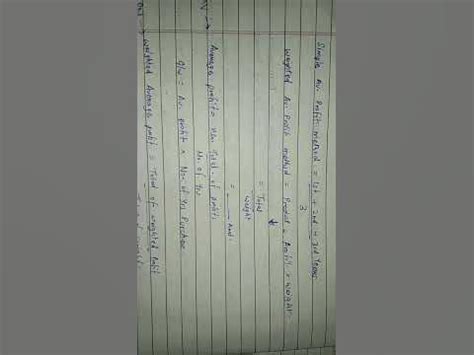 Simple Av. Profit method = 1st + 2nd + 3rd Years
3
weighted Av. Profit method = Product = Profit × weight
= Total
weight
= Amt.
Average profit = Total of profits
No. of yrs
G/w = Av. profit × No. of yrs Purchase
weighted Average profit = Total of weighted profit